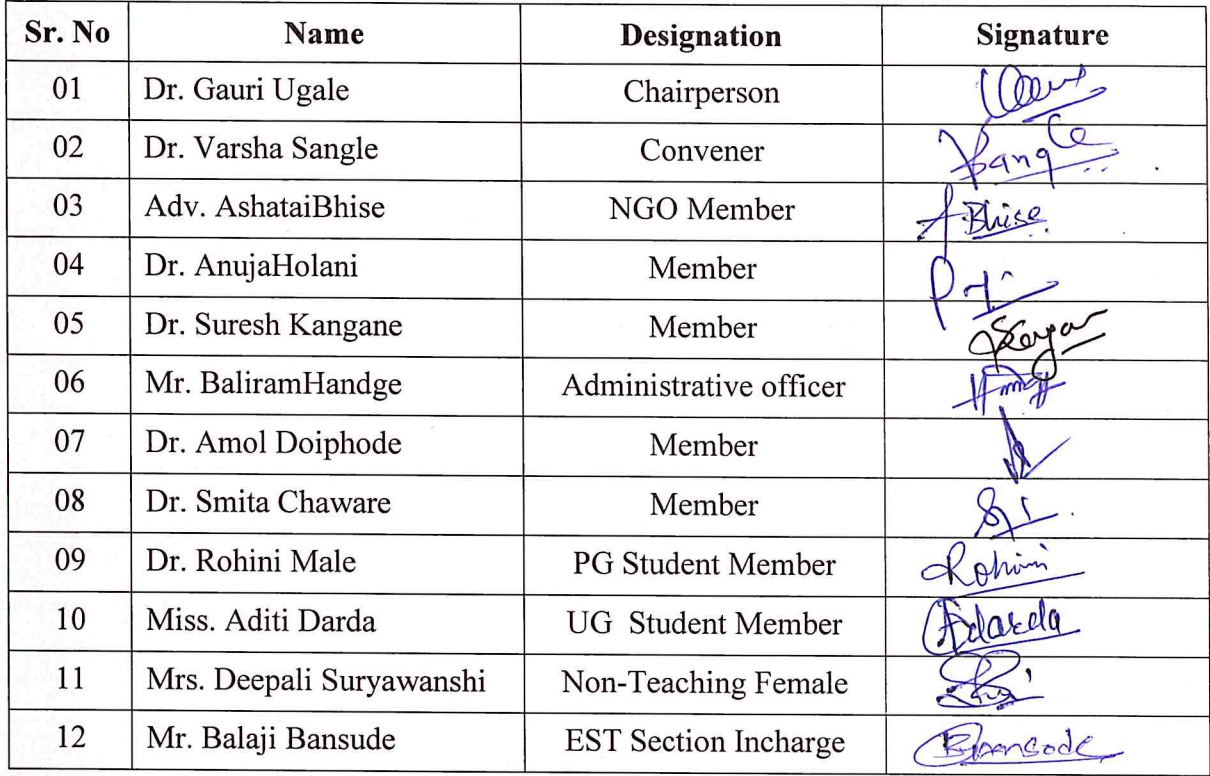 Sr. No Name Designation Signature
01 Dr. Gauri Ugale Chairperson
02 Dr. Varsha Sangle Convener
03 Adv. AshataiBhise NGO Member A Bhise
04 Dr. AnujaHolani Member
05 Dr. Suresh Kangane Member
06 Mr. BaliramHandge Administrative officer
07 Dr. Amol Doiphode Member
08 Dr. Smita Chaware Member
09 Dr. Rohini Male PG Student Member Rohini
10 Miss. Aditi Darda UG Student Member
11 Mrs. Deepali Suryawanshi Non-Teaching Female
12 Mr. Balaji Bansude EST Section Incharge